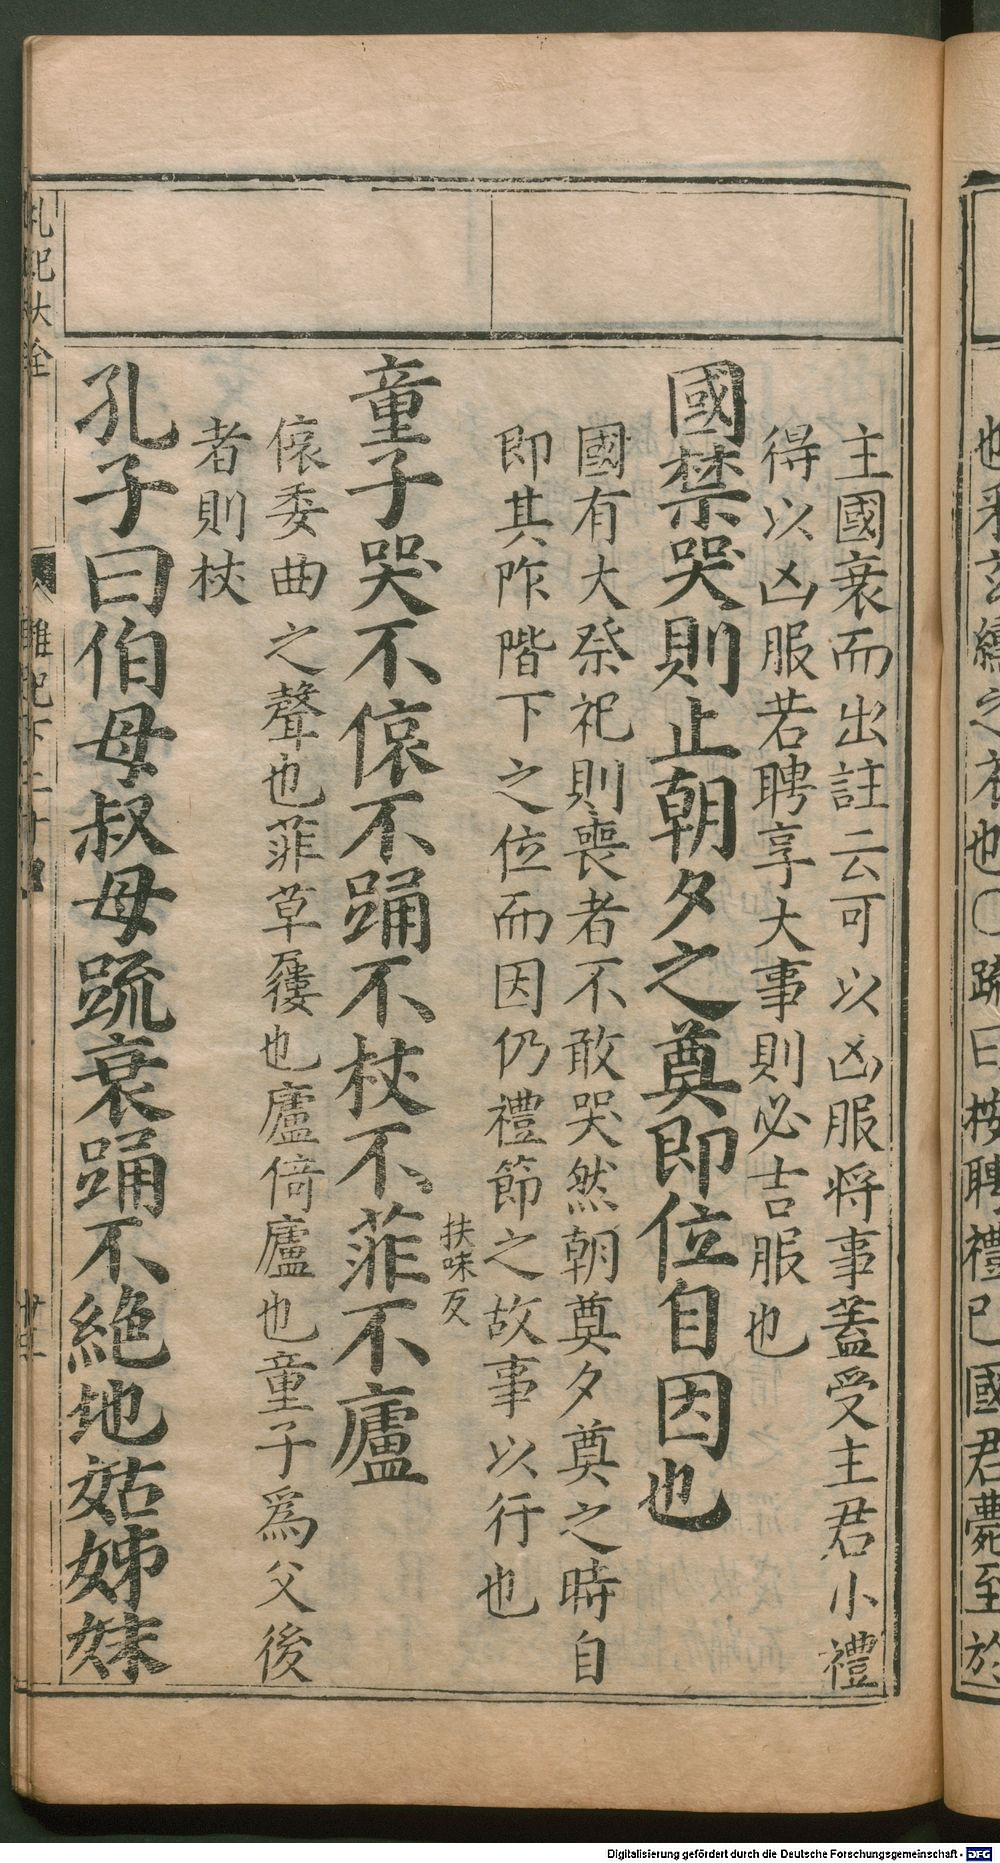 也釆玄纁之衣也○疏曰按聘禮已國君薨至於
主國衰而出註云可以凶服将事蓋受主君小禮
得以凶服若聘享大事則必吉服也
國禁哭則止朝夕之奠即位自因也
國有大祭祀則喪者不敢哭然朝奠夕奠之時自
即其阼階下之位而因仍禮節之故事以行也
扶味反
童子哭不偯不踊不杖不菲不廬
偯委曲之聲也菲草屨也廬倚廬也童子為父後
者則杖
孔子曰伯母叔母疏衰踊不絶地姑姊妹
禮記大全 雜記下二十
Digitalisierung gefördert durch die Deutsche Forschungsgemeinschaft - DFG